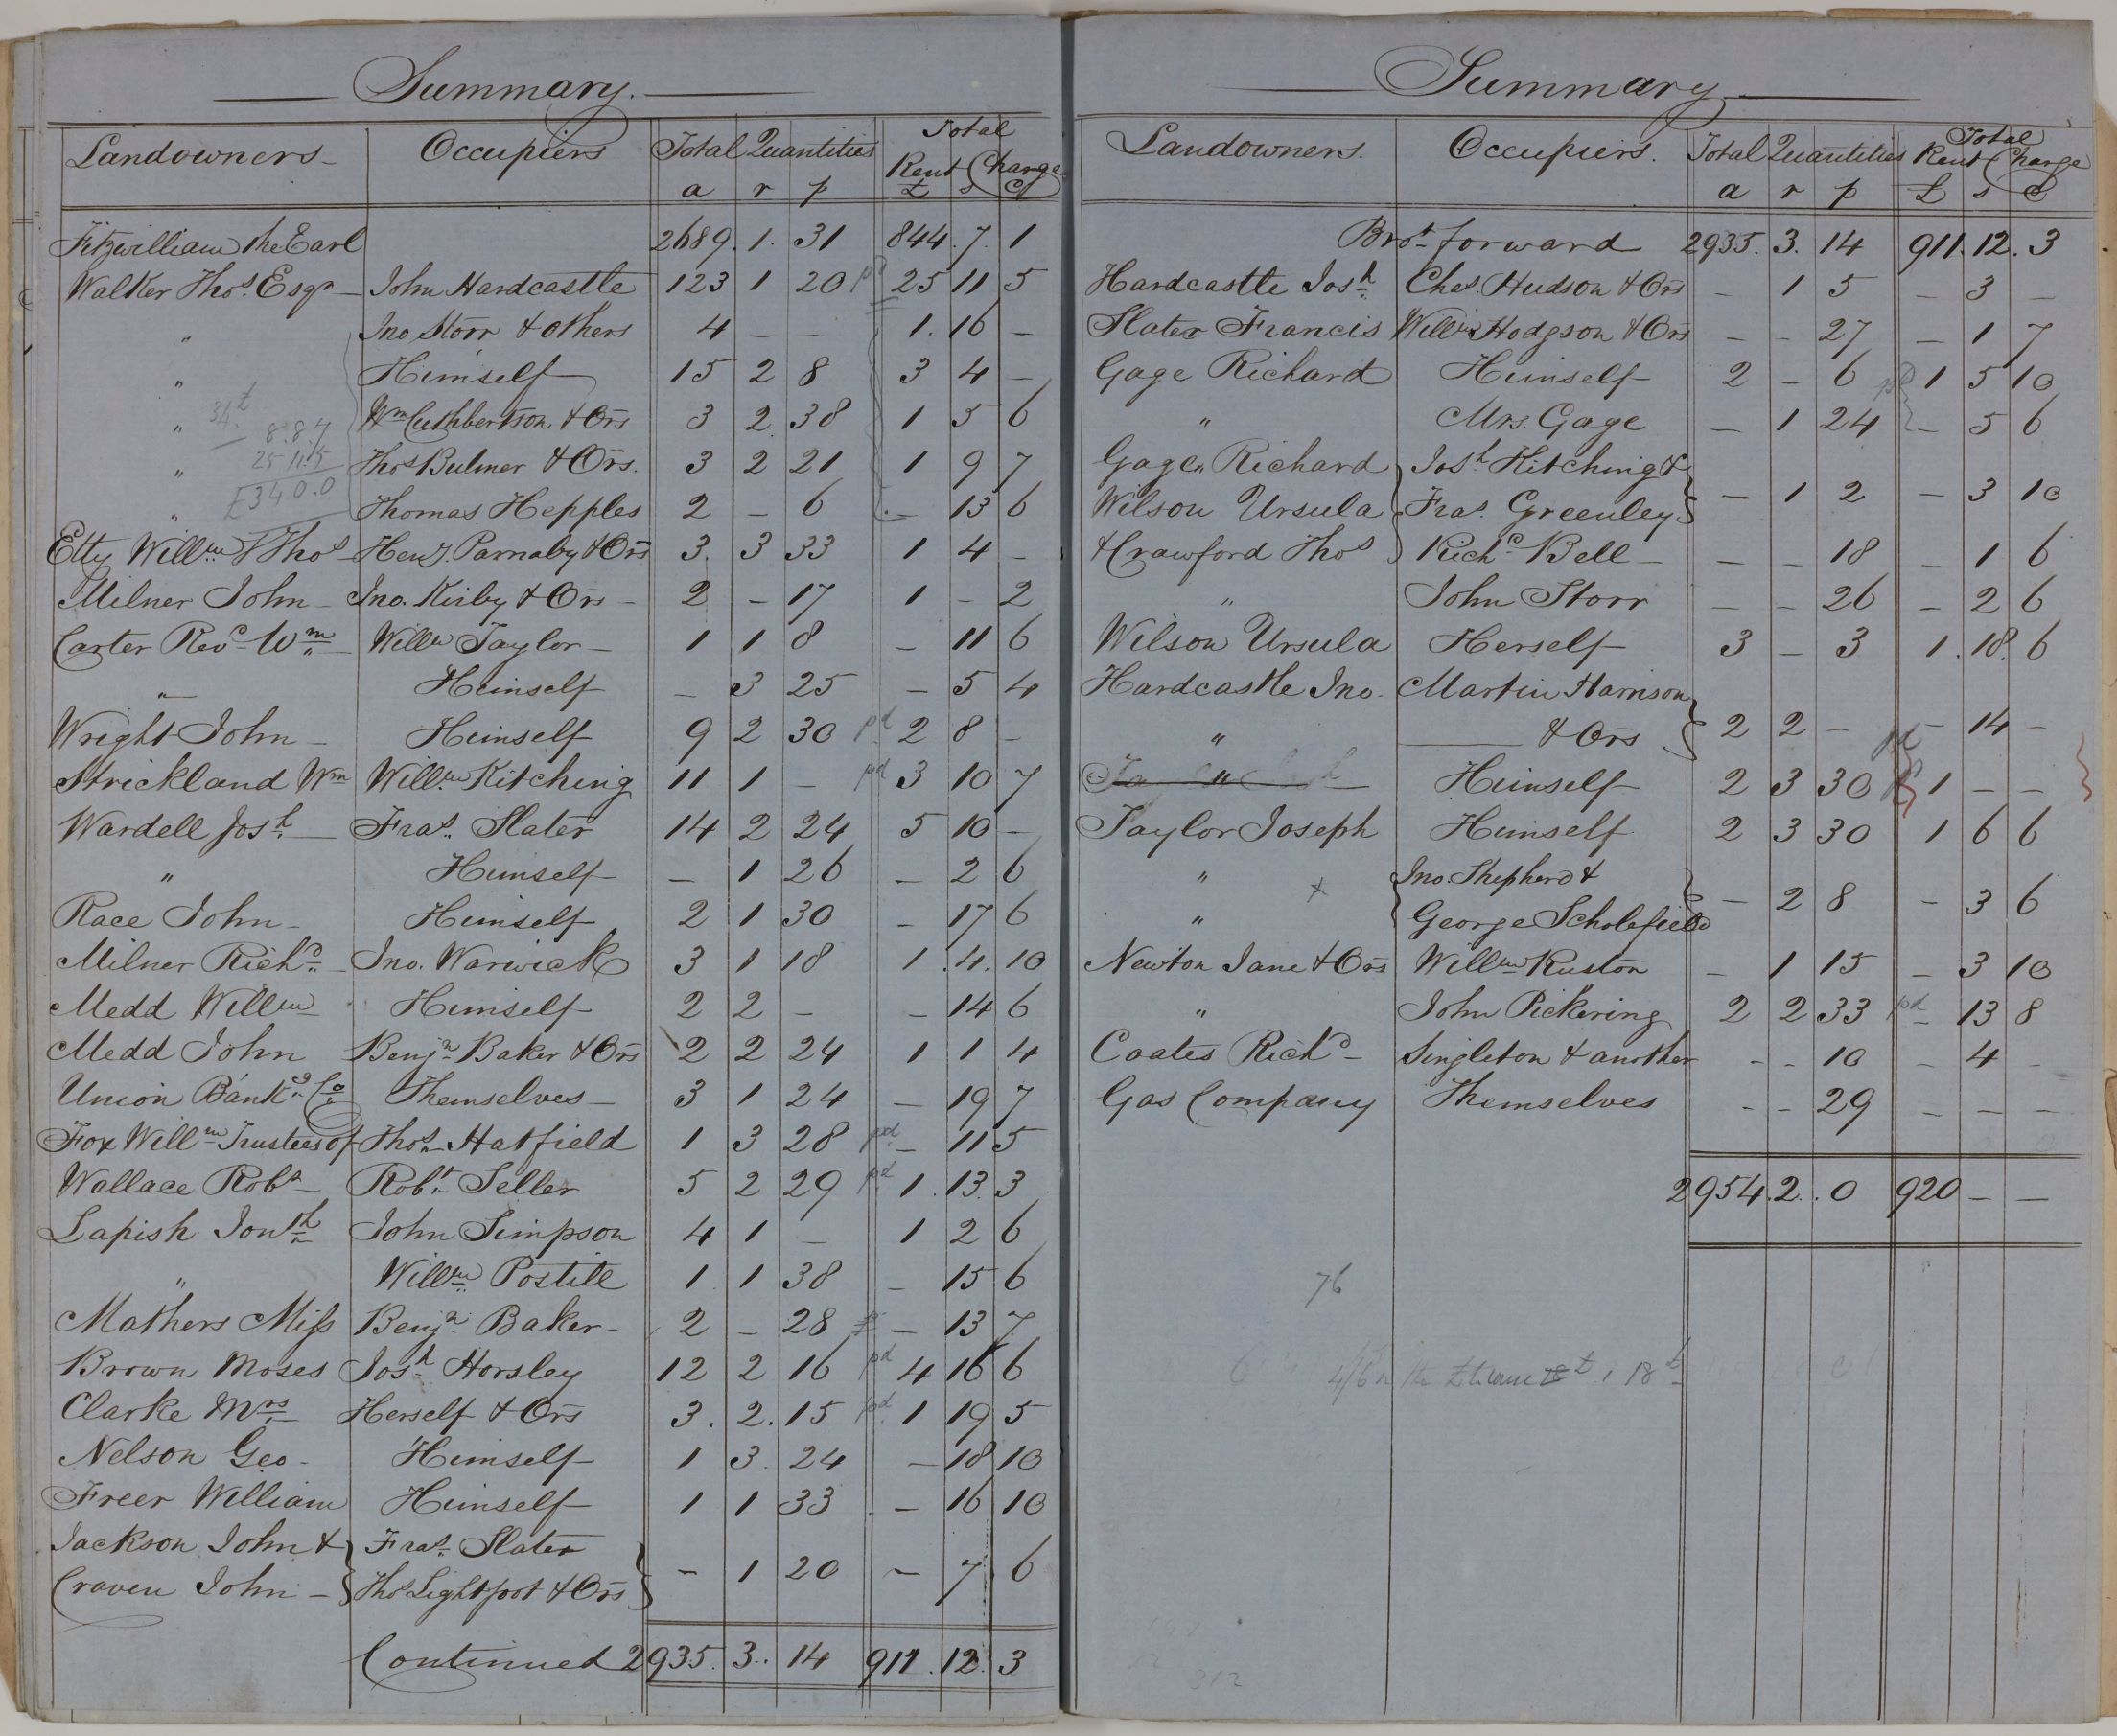 Summary.
Landowners Occupiers Total Quantities Total Rent Charge
a r p £ s d
Fitzwilliam the Earl 2689. 1. 31 844. 7. 1
Walker Thos. Esqr John Hardcastle 123 1 20 pd 25 11 5
" Jno Storr & others 4 – – 1. 16 –
" Himself 15 2 8 3 4 –
" Wm Cuthbertson & Ors 3 2 38 1 5 6
" Thos Bulmer & Ors. 3 2 21 1 9 7
" Thomas Hepples 2 – 6 – 13 6
8.8.7
25 11.5
£34 0.0
Etty Willm & Thos Heny. Parnaby & Ors 3. 3 33 1 4 –
Milner John Jno. Kirby & Ors 2 – 17 1 – 2
Carter Revd Wm Willm Taylor 1 1 8 – 11 6
" Himself – 3 25 – 5 4
Wright John Himself 9 2 30 pd 2 8 –
Strickland Wm Willm Kitching 11 1 – pd 3 10 7
Wardell Josh Fras. Slater 14 2 24 5 10 –
" Himself – 1 26 – 2 6
Race John Himself 2 1 30 – 17 6
Milner Richd Jno. Warwick 3 1 18 1. 4. 10
Medd Willm Himself 2 2 – – 14 6
Medd John Benjn Baker & Ors 2 2 24 1 1 4
Union Bankg Co Themselves 3 1 24 – 19 7
Fox Willm Trustees of Thos Hatfield 1 3 28 pd – 11 5
Wallace Robt Robt Seller 5 2 29 pd 1. 13. 3
Lapish Jonth John Simpson 4 1 – 1 2 6
" Willm Postill 1 1 38 – 15 6
Mathers Miss Benjn Baker 2 – 28 – 13 7
Brown Moses Josh Horsley 12 2 16 pd 4 16 6
Clarke Mrs Herself & Ors 3. 2. 15 pd 1 19 5
Nelson Geo Himself 1 3. 24 – 18 10
Freer William Himself 1 1 33 – 16 10
Jackson John & Fras Slater
Craven John Thos Lightfoot & Ors – 1 20 – 7 6
Continued 2935. 3. 14 911. 12. 3
Summary
Landowners. Occupiers. Total Quantities Total Rent Charge
a r p £ s d
Brot forward 2935. 3. 14 911. 12. 3
Hardcastle Josh Chas. Hudson & Ors – 1 5 – 3 –
Slater Francis Willm Hodgson & Ors – – 27 – 1 7
Gage Richard Himself 2 – 6 pd 1 5 10
" Mrs. Gage – 1 24 – 5 6
Gage Richard Josh Kitching &
Wilson Ursula Fras. Greenley – 1 2 – 3 10
& Crawford Thos Richd Bell – – 18 – 1 6
" John Storr – – 26 – 2 6
Wilson Ursula Herself 3 – 3 1. 18. 6
Hardcastle Jno. Martin Harrison
" & Ors 2 2 – – 14 –
" Himself 2 3 30 1 – –
Taylor Joseph Himself 2 3 30 1 6 6
" Jno. Shepherd &
" George Scholefield – 2 8 – 3 6
Newton Jane & Ors Willm Ruston – 1 15 – 3 10
" John Pickering 2 2 33 pd – 13 8
Coates Richd Singleton & another – – 10 – 4 –
Gas Company Themselves – – 29 – – –
2954. 2. 0 920 – –
76